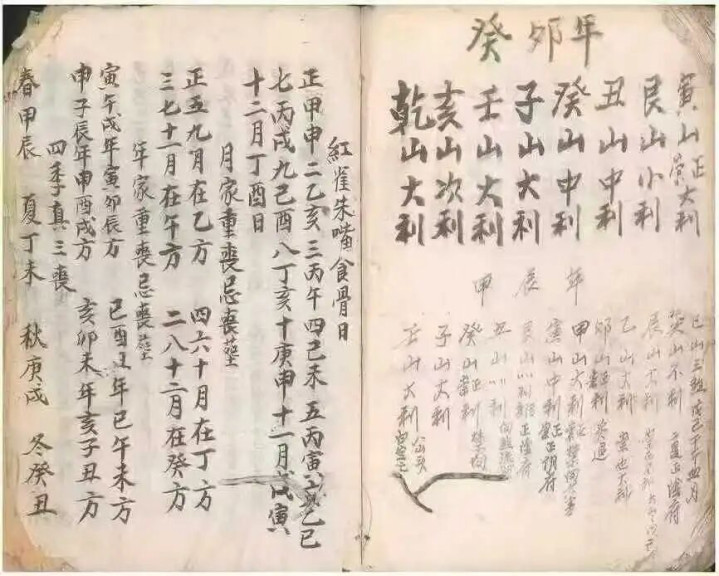 癸卯年
寅山正大利
艮山小利
丑山中利
癸山中利
子山大利
壬山大利
亥山次利
乾山大利
甲辰年
巳山三殺戊己
巽山不利 正陰府
辰山不利
乙山大利
卯山正利
甲山大利
寅山中利
艮山小利 正陰府
丑山小利
癸山正利
子山大利
壬山大利
紅雀朱嘴食骨日
正甲申二乙亥三丙午四己未五丙寅六乙巳
七丙戌九己酉八丁亥十庚申十一月戊寅
十二月丁酉日
月家重喪忌喪葬
正五九月在乙方 四六十月在丁方
三七十一月在午方 二八十二月在癸方
年家重喪忌喪葬
寅午戌年寅卯辰方 巳酉丑年巳午未方
申子辰年申酉戌方 亥卯未年亥子丑方
四季真三喪
春甲辰 夏丁未 秋庚戌 冬癸丑